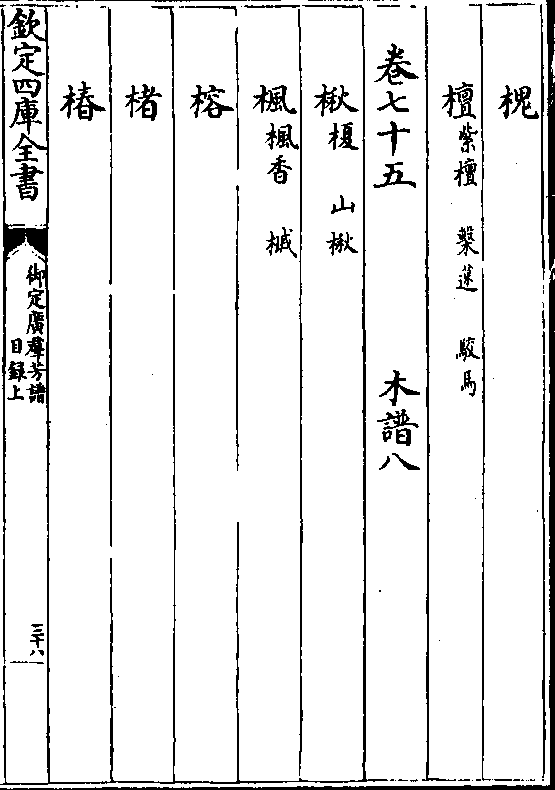 槐
檀紫檀 檕迷 駮馬
卷七十五 木譜八
楸榎 山楸
楓楓香 槭
榕
楮
椿
欽定四庫全書 御定廣羣芳譜 目錄上 三十八